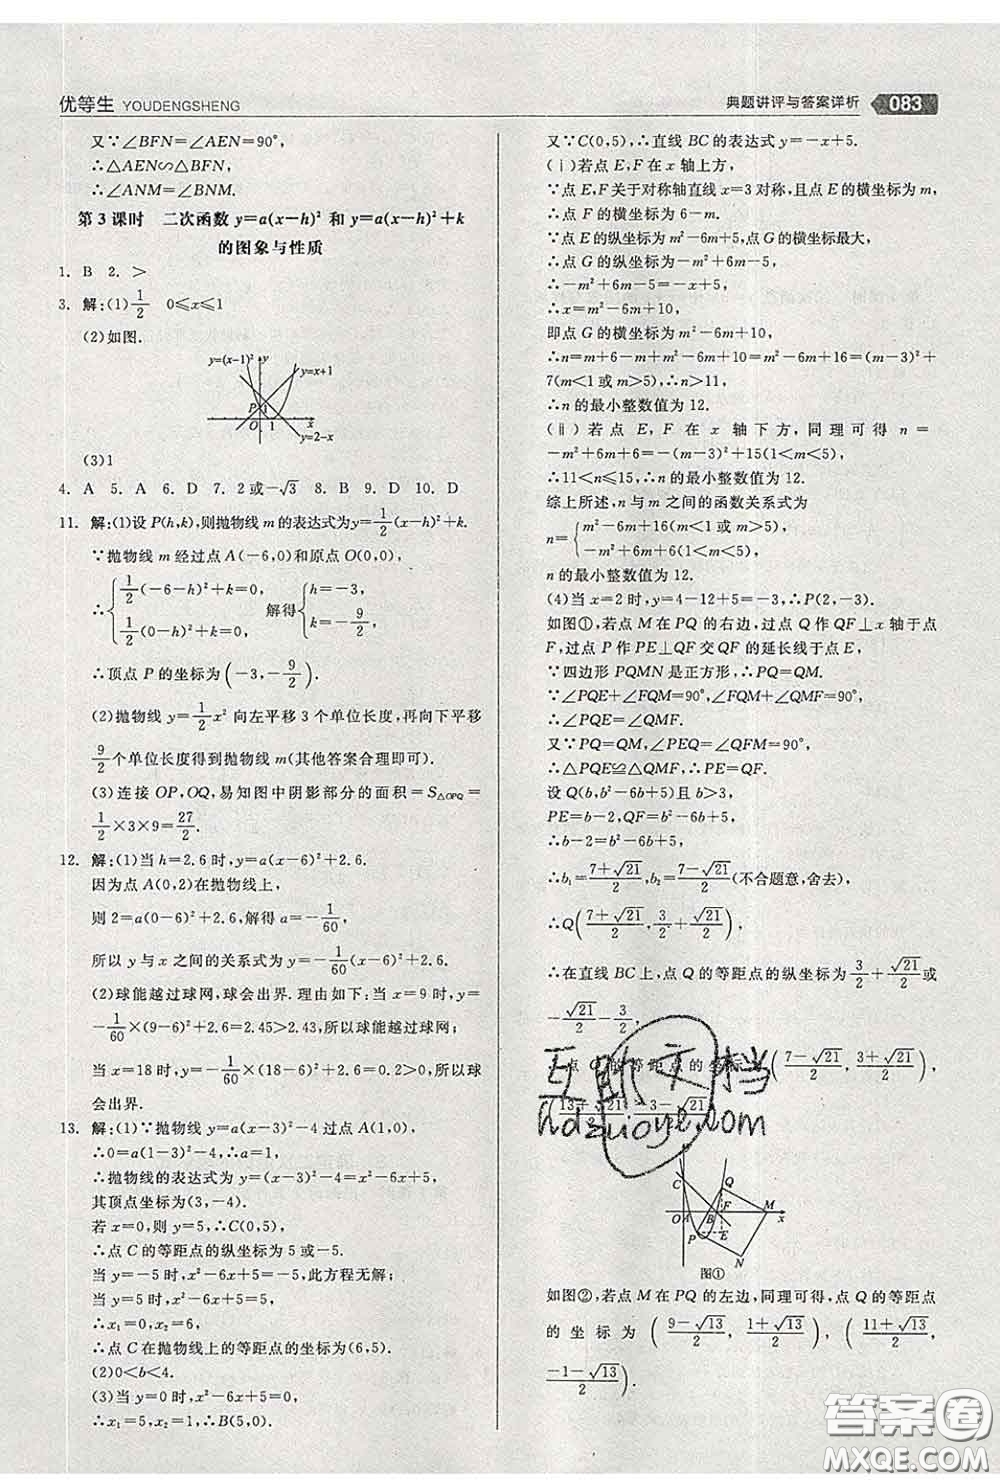 优等生 YOUDENGSHENG
典题讲评与答案详析 083
又∵∠BFN=∠AEN=90°,
∴△AEN∽△BFN,
∴∠ANM=∠BNM.
第3课时 二次函数 y=a(x-h)² 和 y=a(x-h)²+k
的图象与性质
1. B 2. >
3. 解:(1)1/2 0≤x≤1
(2)如图.
y=(x-1)² y
y=x+1
P 1
O 1 x
y=2-x
(3)1
4. A 5. A 6. D 7. 2或-√3 8. B 9. D 10. D
11. 解:(1)设P(h,k),则抛物线m的表达式为y=1/2(x-h)²+k.
∵抛物线 m 经过点 A(-6,0)和原点O(0,0),
∴{1/2(-6-h)²+k=0, 解得{h=-3,
1/2(0-h)²+k=0, k=-9/2.
∴顶点 P 的坐标为(-3,-9/2).
(2)抛物线 y=1/2x² 向左平移3个单位长度,再向下平移
9/2个单位长度得到抛物线m(其他答案合理即可).
(3)连接OP,OQ,易知图中阴影部分的面积=S△OPQ=
1/2×3×9=27/2.
12. 解:(1)当h=2.6时,y=a(x-6)²+2.6.
因为点A(0,2)在抛物线上,
则 2=a(0-6)²+2.6,解得 a=-1/60,
所以 y 与 x 之间的关系式为 y=-1/60(x-6)²+2.6.
(2)球能越过球网,球会出界.理由如下:当 x=9 时,y=
-1/60×(9-6)²+2.6=2.45>2.43,所以球能越过球网;
当x=18时,y=-1/60×(18-6)²+2.6=0.2>0,所以球
会出界.
13. 解:(1)∵抛物线 y=a(x-3)²-4 过点 A(1,0),
∴0=a(1-3)²-4,∴a=1,
∴抛物线的表达式为 y=(x-3)²-4=x²-6x+5,
其顶点坐标为(3,-4).
若 x=0,则 y=5,∴C(0,5),
∴点 C 的等距点的纵坐标为 5 或-5.
当 y=-5时,x²-6x+5=-5,此方程无解;
当 y=5时,x²-6x+5=5,
∴x₁=0,x₂=6,
∴点 C 在抛物线上的等距点的坐标为(6,5).
(2)0<b<4.
(3)当 y=0时,x²-6x+5=0,
∴x₁=1,x₂=5,∴B(5,0).
又∵C(0,5),∴直线 BC 的表达式 y=-x+5.
(ⅰ)若点 E,F 在 x 轴上方,
∵点 E,F 关于对称轴直线 x=3对称,且点 E 的横坐标为 m,
∴点 F 的横坐标为 6-m.
∵点 E 的纵坐标为 m²-6m+5,点 G 的横坐标最大,
∴点 G 的纵坐标为-m²+6m-5,
∴-m²+6m-5=-x+5,
∴x=m²-6m+10,
即点 G 的横坐标为 m²-6m+10,
∴n=m+6-m+m²-6m+10=m²-6m+16=(m-3)²+
7(m<1或m>5),∴n>11,
∴n 的最小整数值为 12.
(ⅱ)若点 E,F 在 x 轴下方,同理可得 n=
-m²+6m+6=-(m-3)²+15(1<m<5),
∴11<n≤15,∴n 的最小整数值为 12.
综上所述,n 与 m 之间的函数关系式为
n={m²-6m+16(m<1或m>5),
-m²+6m+6(1<m<5),
n 的最小整数值为 12.
(4)当 x=2时,y=4-12+5=-3,∴P(2,-3).
如图①,若点 M 在 PQ 的右边,过点 Q 作QF⊥x 轴于点
F,过点 P 作 PE⊥QF 交 QF 的延长线于点 E,
∵四边形 PQMN 是正方形,∴PQ=QM.
∵∠PQE+∠FQM=90°,∠FQM+∠QMF=90°,
∴∠PQE=∠QMF.
又∵PQ=QM,∠PEQ=∠QFM=90°,
∴△PQE≌△QMF,∴PE=QF.
设 Q(b,b²-6b+5)且 b>3,
PE=b-2,QF=b²-6b+5,
∴b-2=b²-6b+5,
∴b₁=(7+√21)/2,b₂=(7-√21)/2(不合题意,舍去),
∴Q((7+√21)/2,3/2+√21/2),
∴在直线 BC 上,点 Q 的等距点的纵坐标为3/2+√21/2或
-√21/2-3/2,
点 Q 的等距点的坐标为((7-√21)/2,(3+√21)/2),
((13+√21)/2,(-3-√21)/2).
C Q
O A B F M x
P E
N
图①
如图②,若点 M 在 PQ 的左边,同理可得,点 Q 的等距点
的坐标为((9-√13)/2,(1+√13)/2),((11+√13)/2,
(-1-√13)/2).
互助文档
hdzuoye.com
答案圈
MXQE.COM